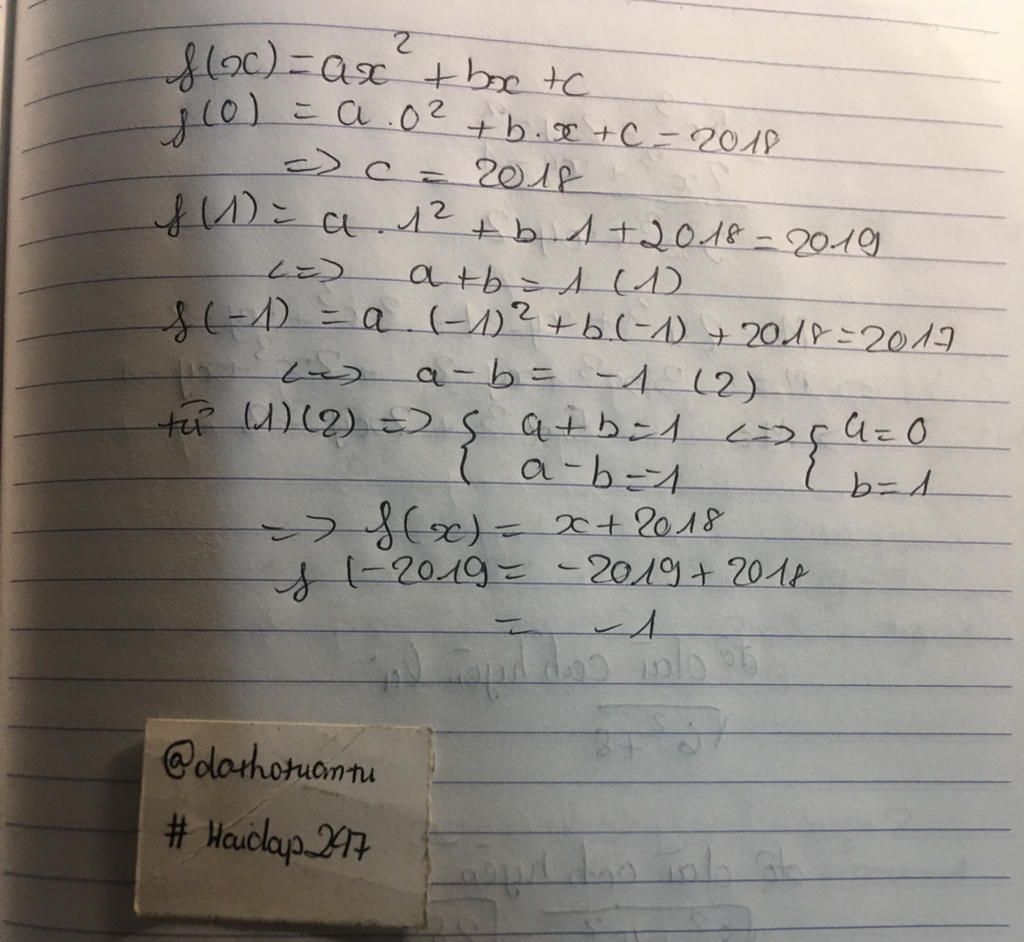 f(x) = ax² + bx + c
f(0) = a . 0² + b . x + c = 2018
=> c = 2018
f(1) = a . 1² + b . 1 + 2018 = 2019
<=> a + b = 1 (1)
f(-1) = a . (-1)² + b.(-1) + 2018 = 2017
<=> a - b = -1 (2)
từ (1)(2) => { a + b = 1 <=> { a = 0
a - b = -1 b = 1
=> f(x) = x + 2018
f (-2019 = -2019 + 2018
= -1
@dathotuantu
# Hoidap247